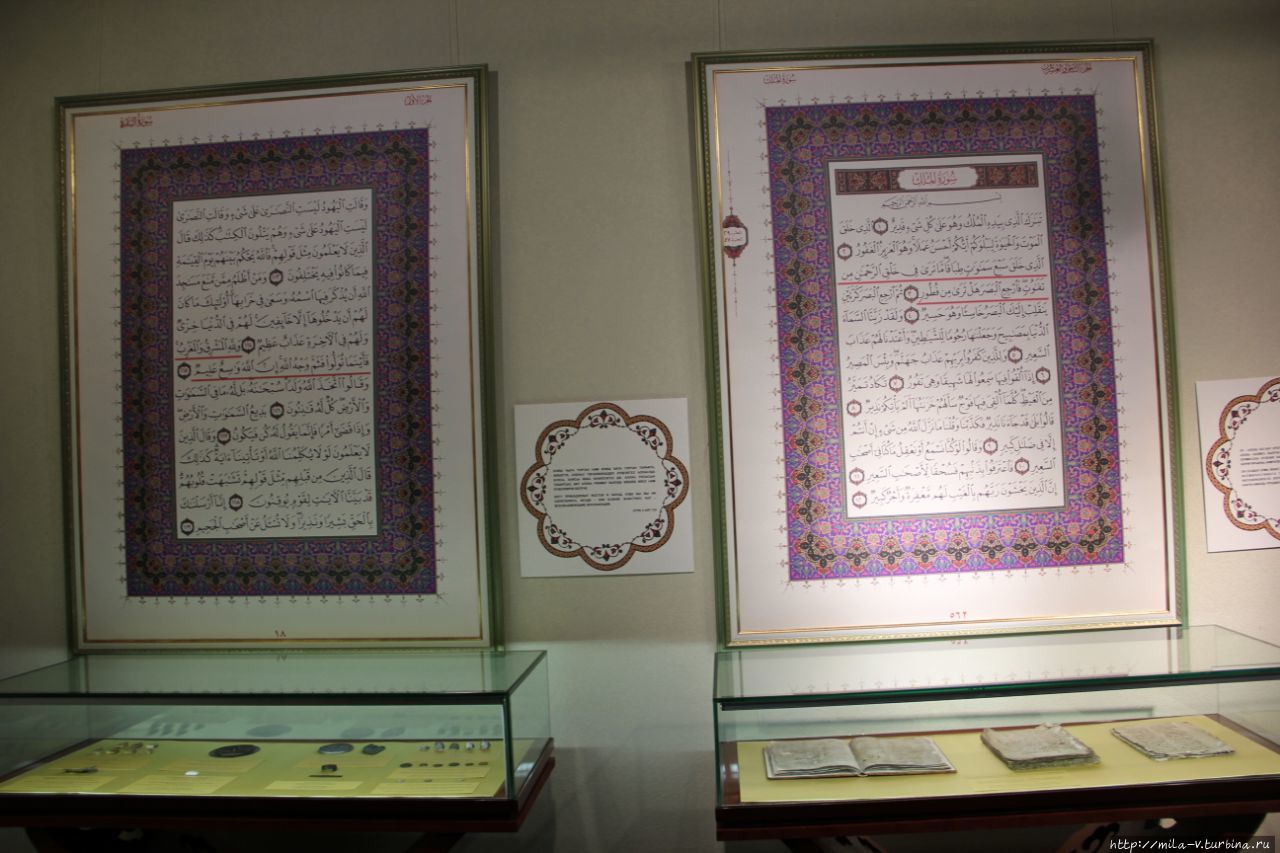 سورة البقرة
الجزء الأول
وَقَالَتِ ٱلْيَهُودُ لَيْسَتِ ٱلنَّصَٰرَىٰ عَلَىٰ شَىْءٍ وَقَالَتِ ٱلنَّصَٰرَىٰ
لَيْسَتِ ٱلْيَهُودُ عَلَىٰ شَىْءٍ وَهُمْ يَتْلُونَ ٱلْكِتَٰبَ كَذَٰلِكَ قَالَ
ٱلَّذِينَ لَا يَعْلَمُونَ مِثْلَ قَوْلِهِمْ فَٱللَّهُ يَحْكُمُ بَيْنَهُمْ يَوْمَ ٱلْقِيَٰمَةِ
فِيمَا كَانُوا۟ فِيهِ يَخْتَلِفُونَ ١١٣ وَمَنْ أَظْلَمُ مِمَّن مَّنَعَ مَسَٰجِدَ
ٱللَّهِ أَن يُذْكَرَ فِيهَا ٱسْمُهُۥ وَسَعَىٰ فِى خَرَابِهَآ أُو۟لَٰٓئِكَ مَا كَانَ
لَهُمْ أَن يَدْخُلُوهَآ إِلَّا خَآئِفِينَ لَهُمْ فِى ٱلدُّنْيَا خِزْىٌ
وَلَهُمْ فِى ٱلْءَاخِرَةِ عَذَابٌ عَظِيمٌ ١١٤ وَلِلَّهِ ٱلْمَشْرِقُ وَٱلْمَغْرِبُ
فَأَيْنَمَا تُوَلُّوا۟ فَثَمَّ وَجْهُ ٱللَّهِ إِنَّ ٱللَّهَ وَٰسِعٌ عَلِيمٌ ١١٥
وَقَالُوا۟ ٱتَّخَذَ ٱللَّهُ وَلَدًا سُبْحَٰنَهُۥ بَل لَّهُۥ مَا فِى ٱلسَّمَٰوَٰتِ
وَٱلْأَرْضِ كُلٌّ لَّهُۥ قَٰنِتُونَ ١١٦ بَدِيعُ ٱلسَّمَٰوَٰتِ وَٱلْأَرْضِ
وَإِذَا قَضَىٰٓ أَمْرًا فَإِنَّمَا يَقُولُ لَهُۥ كُن فَيَكُونُ ١١٧ وَقَالَ ٱلَّذِينَ
لَا يَعْلَمُونَ لَوْلَا يُكَلِّمُنَا ٱللَّهُ أَوْ تَأْتِينَآ ءَايَةٌ كَذَٰلِكَ
قَالَ ٱلَّذِينَ مِن قَبْلِهِم مِّثْلَ قَوْلِهِمْ تَشَٰبَهَتْ قُلُوبُهُمْ
قَدْ بَيَّنَّا ٱلْءَايَٰتِ لِقَوْمٍ يُوقِنُونَ ١١٨ إِنَّآ أَرْسَلْنَٰكَ
بِٱلْحَقِّ بَشِيرًا وَنَذِيرًا وَلَا تُسْـَٔلُ عَنْ أَصْحَٰبِ ٱلْجَحِيمِ ١١٩
١٨
سورة الملك
الجزء التاسع والعشرون
سُورَةُ المُلْكِ
بِسْمِ ٱللَّهِ ٱلرَّحْمَٰنِ ٱلرَّحِيمِ
تَبَٰرَكَ ٱلَّذِى بِيَدِهِ ٱلْمُلْكُ وَهُوَ عَلَىٰ كُلِّ شَىْءٍ قَدِيرٌ ١ ٱلَّذِى خَلَقَ
ٱلْمَوْتَ وَٱلْحَيَوٰةَ لِيَبْلُوَكُمْ أَيُّكُمْ أَحْسَنُ عَمَلًا وَهُوَ ٱلْعَزِيزُ ٱلْغَفُورُ ٢
ٱلَّذِى خَلَقَ سَبْعَ سَمَٰوَٰتٍ طِبَاقًا مَّا تَرَىٰ فِى خَلْقِ ٱلرَّحْمَٰنِ مِن
تَفَٰوُتٍ فَٱرْجِعِ ٱلْبَصَرَ هَلْ تَرَىٰ مِن فُطُورٍ ٣ ثُمَّ ٱرْجِعِ ٱلْبَصَرَ كَرَّتَيْنِ
يَنقَلِبْ إِلَيْكَ ٱلْبَصَرُ خَاسِئًا وَهُوَ حَسِيرٌ ٤ وَلَقَدْ زَيَّنَّا ٱلسَّمَآءَ
ٱلدُّنْيَا بِمَصَٰبِيحَ وَجَعَلْنَٰهَا رُجُومًا لِّلشَّيَٰطِينِ وَأَعْتَدْنَا لَهُمْ عَذَابَ
ٱلسَّعِيرِ ٥ وَلِلَّذِينَ كَفَرُوا۟ بِرَبِّهِمْ عَذَابُ جَهَنَّمَ وَبِئْسَ ٱلْمَصِيرُ
٦ إِذَآ أُلْقُوا۟ فِيهَا سَمِعُوا۟ لَهَا شَهِيقًا وَهِىَ تَفُورُ ٧ تَكَادُ تَمَيَّزُ
مِنَ ٱلْغَيْظِ كُلَّمَآ أُلْقِىَ فِيهَا فَوْجٌ سَأَلَهُمْ خَزَنَتُهَآ أَلَمْ يَأْتِكُمْ نَذِيرٌ ٨
قَالُوا۟ بَلَىٰ قَدْ جَآءَنَا نَذِيرٌ فَكَذَّبْنَا وَقُلْنَا مَا نَزَّلَ ٱللَّهُ مِن شَىْءٍ إِنْ أَنتُمْ
إِلَّا فِى ضَلَٰلٍ كَبِيرٍ ٩ وَقَالُوا۟ لَوْ كُنَّا نَسْمَعُ أَوْ نَعْقِلُ مَا كُنَّا فِىٓ أَصْحَٰبِ
ٱلسَّعِيرِ ١٠ فَٱعْتَرَفُوا۟ بِذَنۢبِهِمْ فَسُحْقًا لِّأَصْحَٰبِ ٱلسَّعِيرِ ١١
إِنَّ ٱلَّذِينَ يَخْشَوْنَ رَبَّهُم بِٱلْغَيْبِ لَهُم مَّغْفِرَةٌ وَأَجْرٌ كَبِيرٌ ١٢
٥٦٢
http://mila-v.turbina.ru